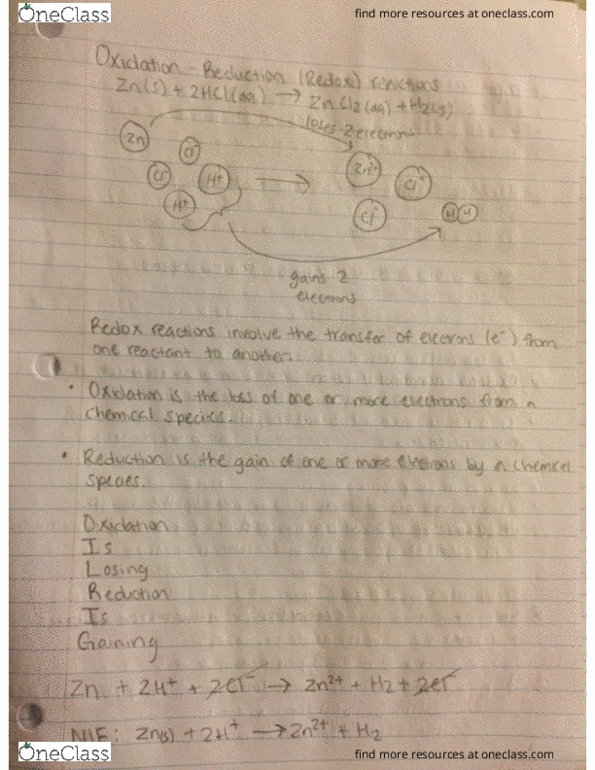 OneClass
find more resources at oneclass.com
Oxidation - Reduction (Redox) reactions
Zn(s) + 2HCl(aq) → ZnCl2(aq) + H2(g)
loses 2 electrons
Zn
Cl⁻
Cl⁻
H⁺
H⁺
→
Zn²⁺
Cl⁻
Cl⁻
H H
gains 2
electrons
Redox reactions involve the transfer of electrons (e⁻) from
one reactant to another.
• Oxidation is the loss of one or more electrons from a
chemical species.
• Reduction is the gain of one or more electrons by a chemical
species.
Oxidation
Is
Losing
Reduction
Is
Gaining
Zn + 2H⁺ + 2Cl⁻ → Zn²⁺ + H2 + 2Cl⁻
NIE: Zn(s) + 2H⁺ → Zn²⁺ + H2
OneClass
find more resources at oneclass.com